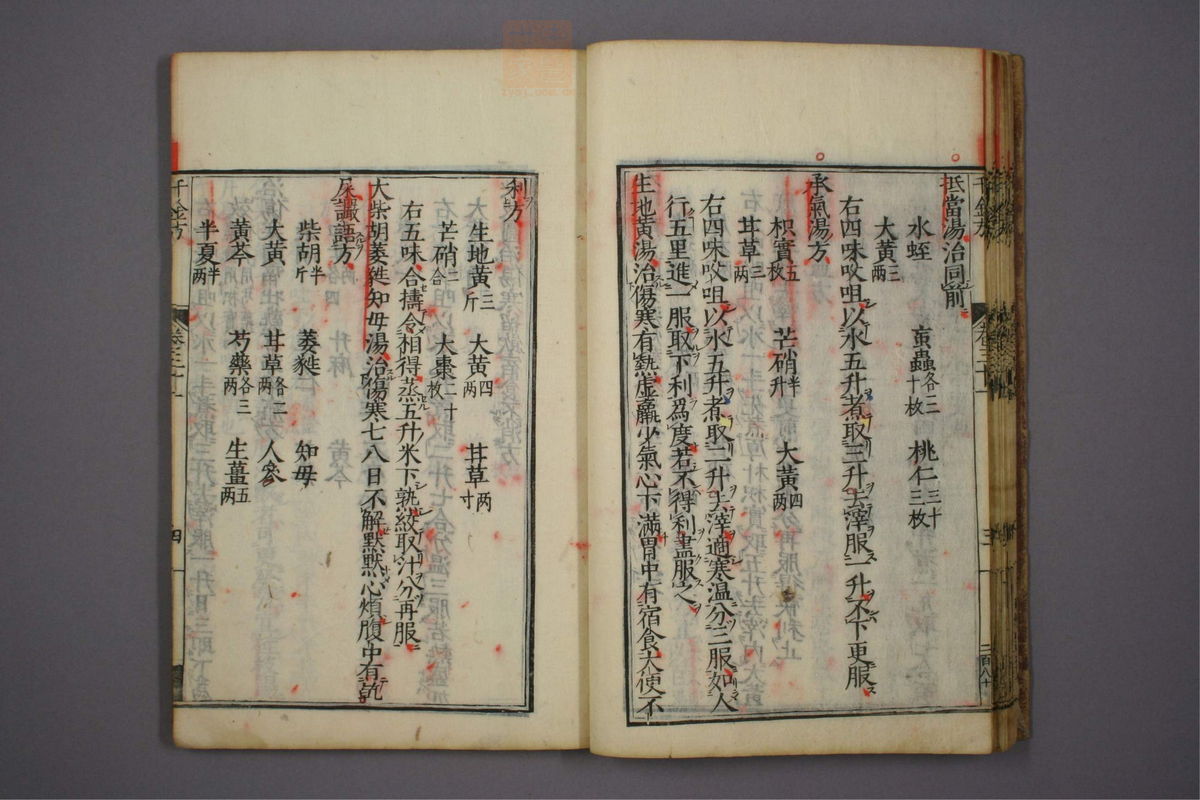 抵當湯治同前
水蛭　䖟蟲各二十枚　桃仁三十三枚
大黃三兩
右四味㕮咀以水五升煮取三升去滓服一升不下更服
承氣湯方
枳實五枚　芒硝半升　大黃四兩
甘草三兩
右四味㕮咀以水五升煮取二升去滓適寒溫分三服如人
行五里進一服取下利爲度若不得利盡服之
生地黃湯治傷寒有熱虛羸少氣心下滿胃中有宿食大便不
利方
生地黃三斤　大黃四兩　甘草一兩
芒硝二合　大棗二十枚
右五味合擣令相得蒸五升米下熟絞取汁分再服
大柴胡萎蕤知母湯治傷寒七八日不解默默心煩腹中有乾
屎譫語方
柴胡半斤　萎蕤　知母
大黃　甘草各二兩　人參
黃芩　芍藥各三兩　生薑五兩
半夏半兩
千金方　卷三十　四